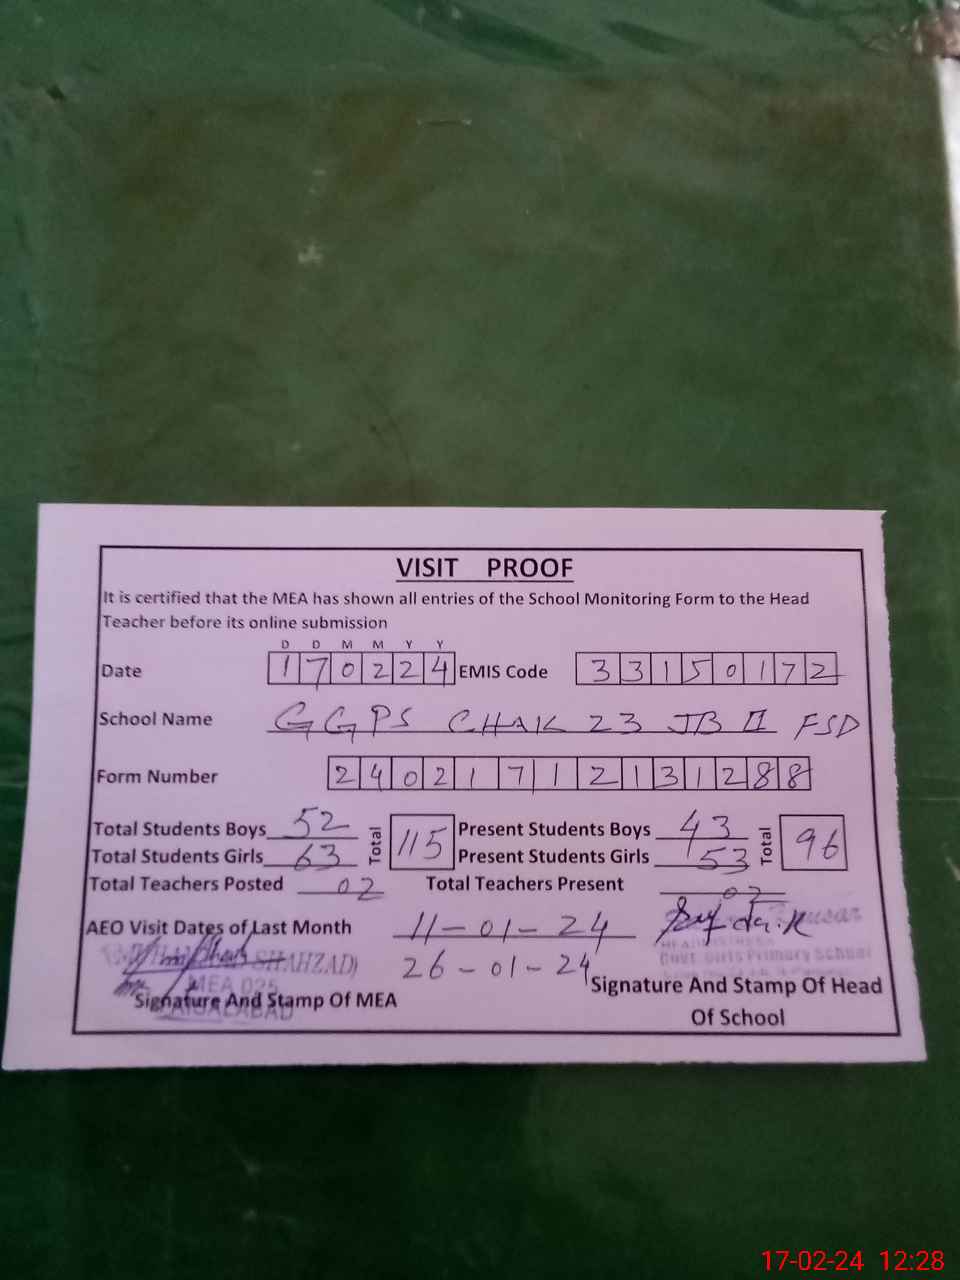 VISIT PROOF
It is certified that the MEA has shown all entries of the School Monitoring Form to the Head
Teacher before its online submission
D D M M Y Y
Date 170224 EMIS Code 33150172
School Name GGPS CHAK 23 JB II FSD
Form Number 24021712131288
Total Students Boys 52 Total 115 Present Students Boys 43 Total 96
Total Students Girls 63 Present Students Girls 53
Total Teachers Posted 02 Total Teachers Present 02
AEO Visit Dates of Last Month 11-01-24
SHAHZAD) 26-01-24
Govt Girls Primary School
MEA 025
FAISALABAD
Signature And Stamp Of MEA Signature And Stamp Of Head
Of School
17-02-24 12:28